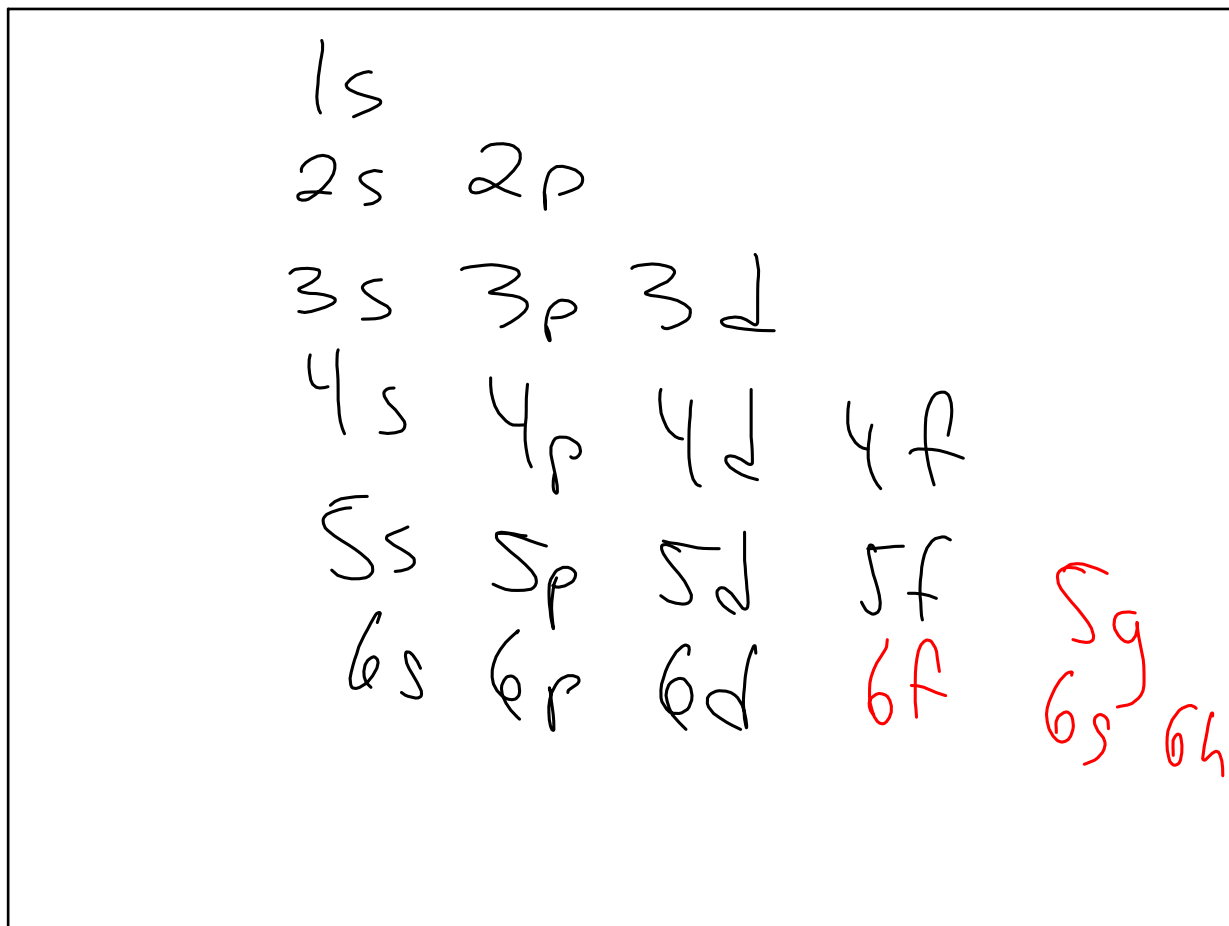 1s
2s 2p
3s 3p 3d
4s 4p 4d 4f
5s 5p 5d 5f 5g
6s 6p 6d 6f 6s 6h